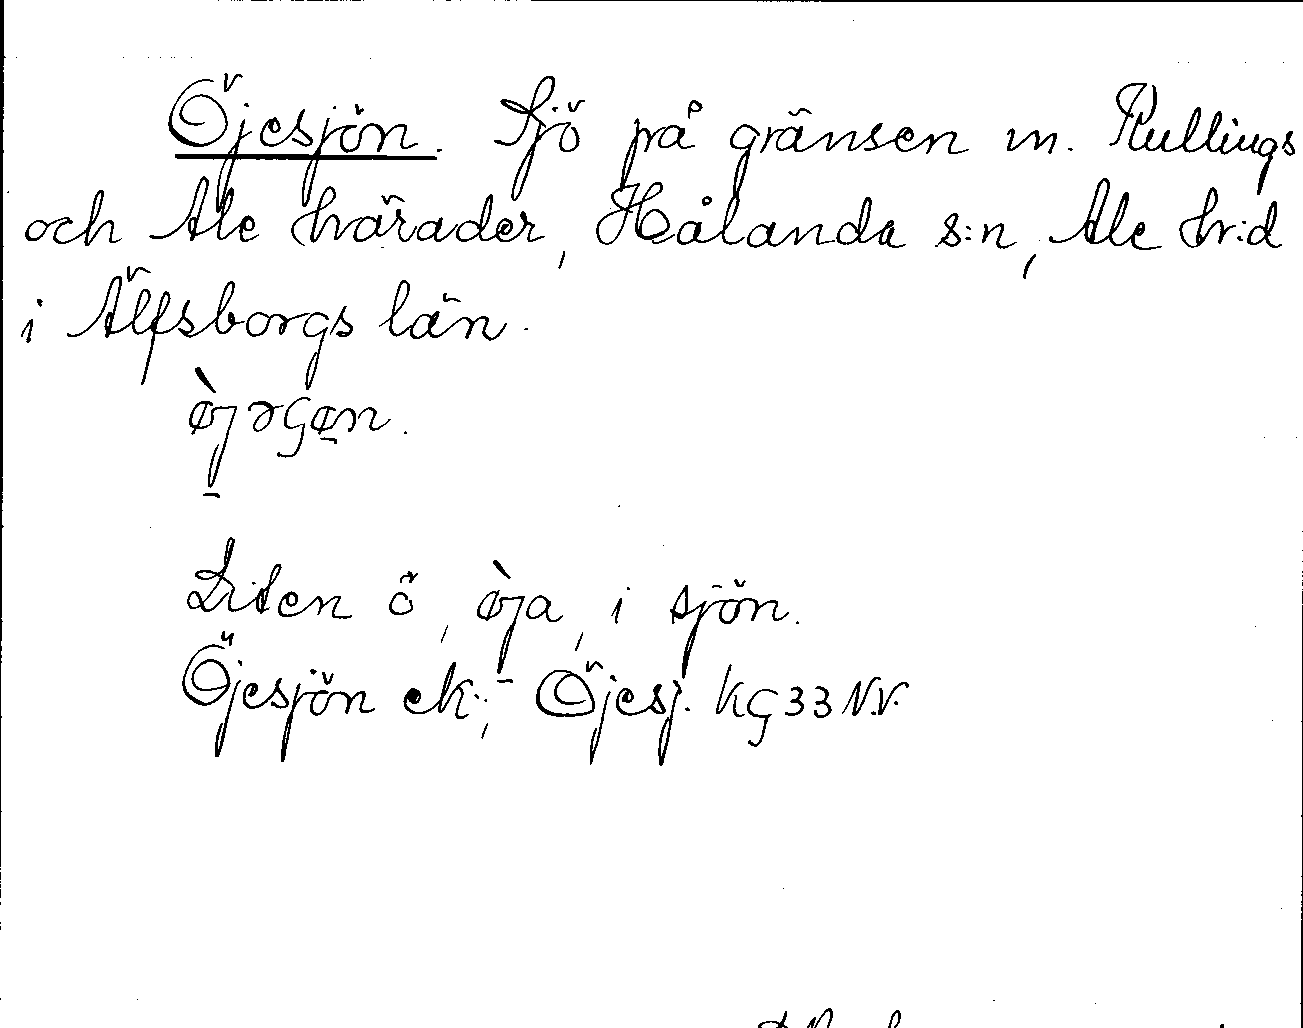 Öjesjön. Sjö på gränsen m. Kullings
och Ale härader, Hålanda s:n, Ale hr:d
i Älfsborgs län.
ø̀jəʂøn.
Liten ö, ø̀ja, i sjön.
Öjesjön ek.; Öjesj. kG 33 N.V.